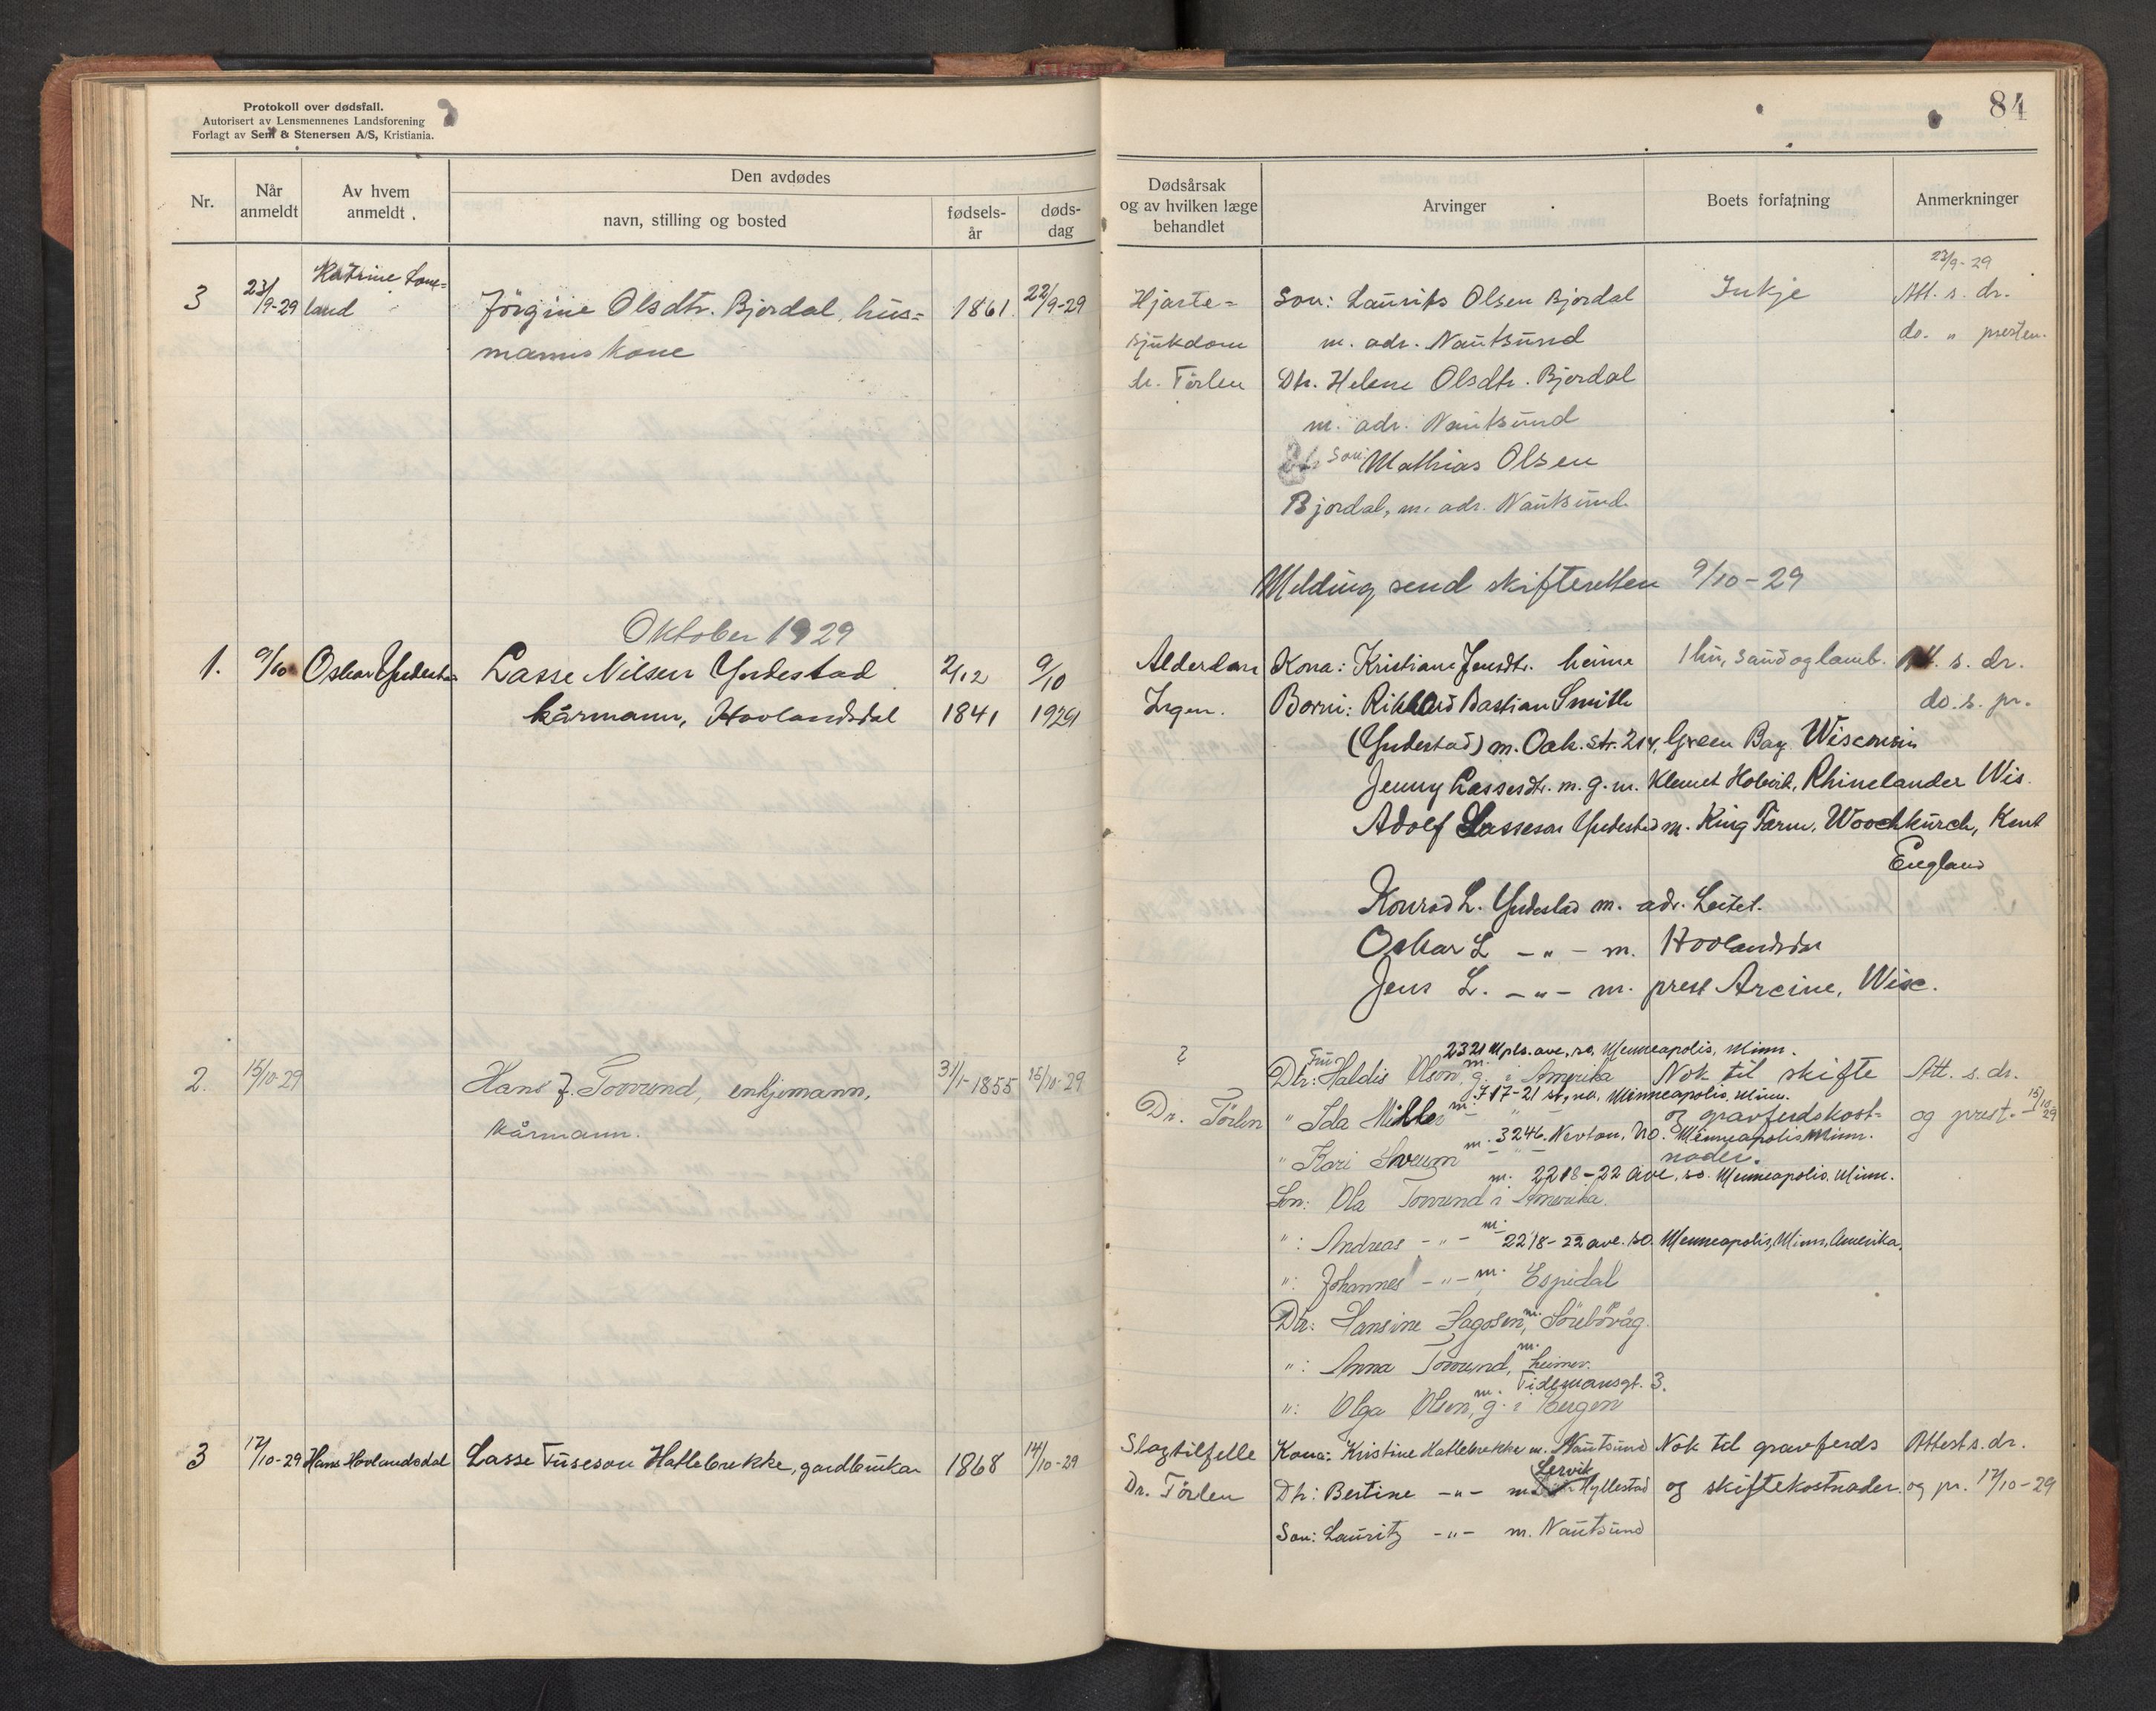 Protokoll over dødsfall.
Autorisert av Lensmennenes Landsforening
Forlagt av Sem & Stenersen A/S, Kristiania.
84
Nr.
Når anmeldt
Av hvem anmeldt
Den avdødes
navn, stilling og bosted
fødsels-år
døds-dag
Dødsårsak og av hvilken læge behandlet
Arvinger
Boets forfatning
Anmerkninger
3 23/9-29 Katrine
land Jörgine Olsdtr. Bjordal, hus= 1861 22/9-29 Hjarte= Son: Laurits Olsen Bjordal Inkje 23/9-29 Att. s. dr.
manns kone sjukdom m. adr. Nautsund do. " presten.
dr. Törlen Dtr. Helene Olsdtr. Bjordal
m. adr. Nautsund
Son: Mathias Olsen
Bjordal, m. adr. Nautsund.
Melding send skifteretten 9/10-29
Oktober 1929
1. 9/10 Oskar Yndestad Lasse Nilsen Yndestad 2/12 9/10 Alderdom Kona: Kristiane Jensdtr. heime 1 ku, saud og lamb. Att. s. dr.
kårmann, Hovlandsdal 1841 1929 Ingen. Borni: Rikkard Bastian Smith do. s. pr.
(Yndestad) m. Oak. Str. 214, Green Bay Wisconsin
Jenny Lassesdtr. m. g. m. Klemet Hobvik, Rhinelander Wis.
Adolf Lasseson Yndestad m. King Farm, Woochkürch, Kent
England
Konrad L. Yndestad m. adr. Leitet.
Oskar L -"- m. Hovlandsdal
Jens L. -"- m. prest Arcine, Wisc.
2321 Mpls. ave, so, Menneapolis, Minn.
2. 15/10-29 Hans J. Tovrund, enkjemann, 31/1-1855 15/10-29 ? Dtr: Fru Haldis Olson, m. g. i Amerika Nok til skifte Att. s. dr.
m. 717-21 st, no, Minneapolis, Minn.
kårmann. Dr. Törlen " Ida Miller -"- og gravferdskost= og prest. 15/10-29
m. 3246. Newton, No. Menneapolis Minn.
" Kari -"- nader.
m. 2218-22 ave, so. Menneapolis. Minn.
Son: Ola Tovrund i Amerika.
": Andreas -"- m. 2218-22 ave. so. Menneapolis, Minn, Amerika.
": Johannes -"- m. Espedal
Dtr: Hansine Hagosen, m. Sörebövåg.
": Anna Tovrund, m. heime.
m. Tidemansgt. 3.
": Olga Olsen, g. i Bergen
3 17/10-29 Hans Hovlandsdal Lasse Tuseson Hatlebrekke, gardbrukar 1868 14/10-29 Slagtilfelle Kona: Kristine Hatlebrekke m. Nautsund Nok til gravferds Attest s. dr.
Dr. Törlen Dtr: Bertine -"- m. Lervik Hyllestad og skiftekostnader. og pr. 17/10-29
Son: Lauritz -"- m. Nautsund